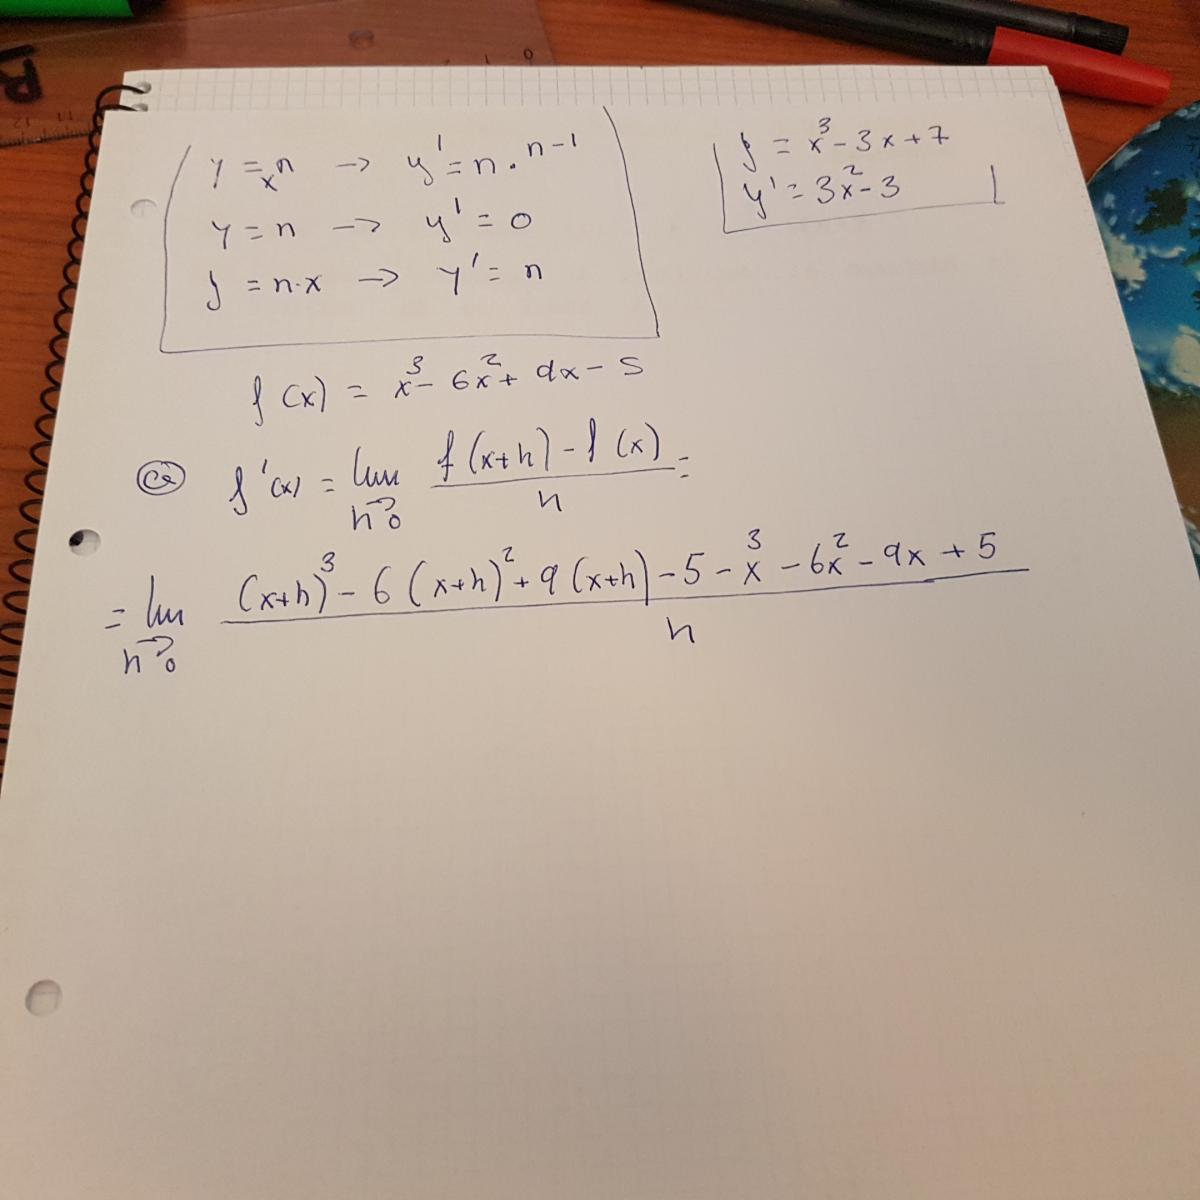 y = xⁿ → y' = n · ⁿ⁻¹
y = n → y' = 0
y = n·x → y' = n
y = x³ - 3x + 7
y' = 3x² - 3
f(x) = x³ - 6x² + 9x - 5
a f'(x) = lim h→0 f(x+h) - f(x) / h =
= lim h→0 (x+h)³ - 6(x+h)² + 9(x+h) - 5 - x³ - 6x² - 9x + 5 / h